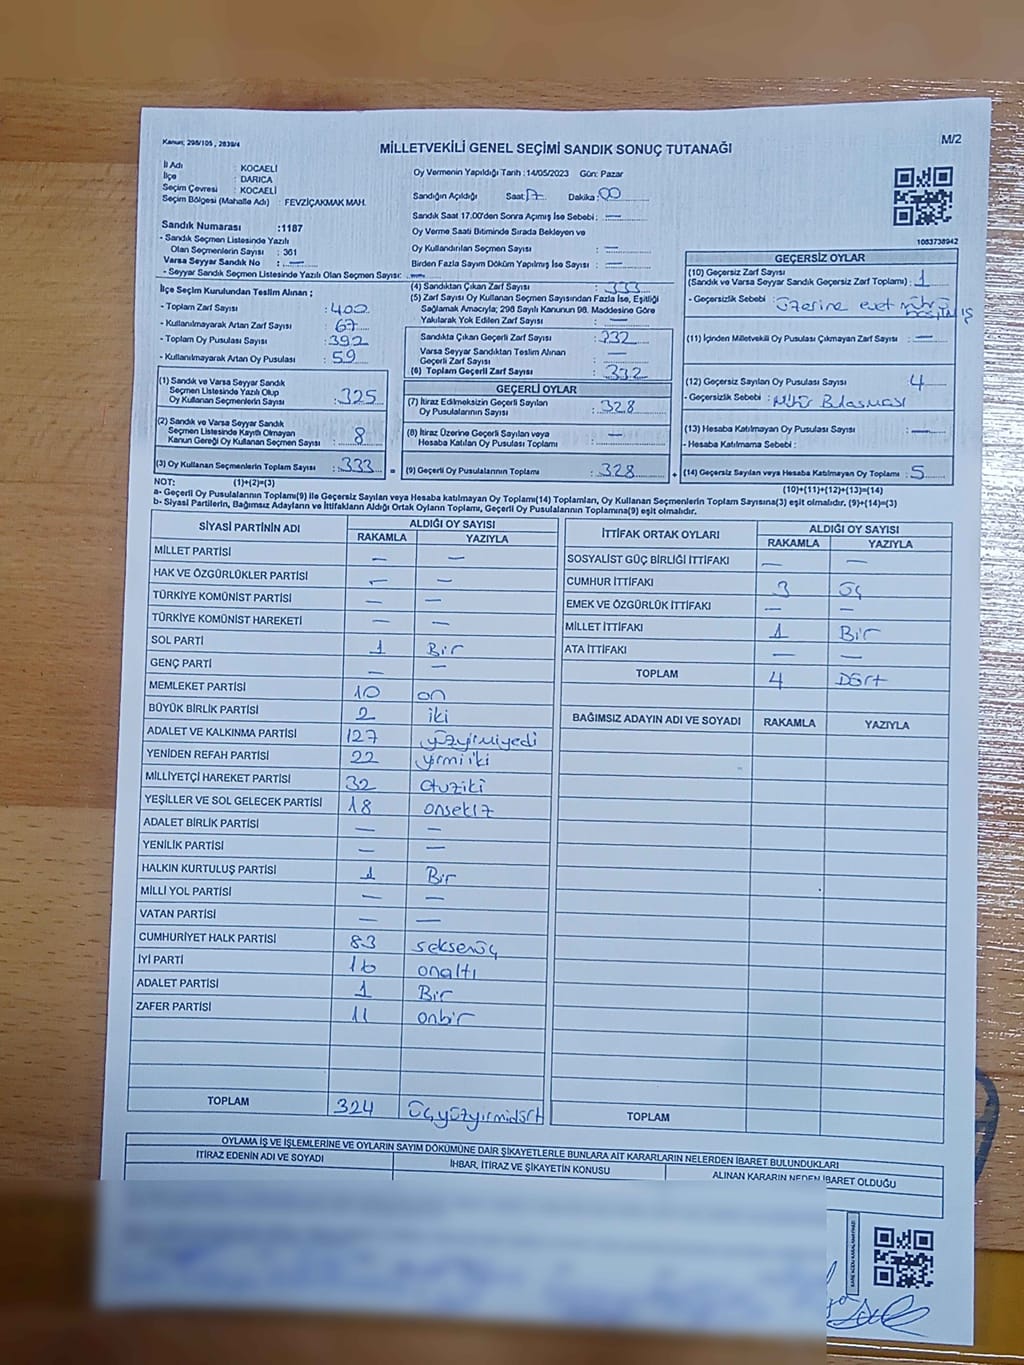 Kanun; 298/105 , 2839/4
M/2
MİLLETVEKİLİ GENEL SEÇİMİ SANDIK SONUÇ TUTANAĞI
İl Adı : KOCAELİ
İlçe : DARICA
Seçim Çevresi : KOCAELİ
Seçim Bölgesi (Mahalle Adı) : FEVZİÇAKMAK MAH.
Sandık Numarası :1187
- Sandık Seçmen Listesinde Yazılı
Olan Seçmenlerin Sayısı : 361
Varsa Seyyar Sandık No : —
- Seyyar Sandık Seçmen Listesinde Yazılı Olan Seçmen Sayısı: —
Oy Vermenin Yapıldığı Tarih :14/05/2023 Gün: Pazar
Sandığın Açıldığı Saat 17 Dakika: 00
Sandık Saat 17.00'den Sonra Açımış İse Sebebi : —
Oy Verme Saati Bitiminde Sırada Bekleyen ve
Oy Kullandırılan Seçmen Sayısı : —
Birden Fazla Sayım Döküm Yapılmış İse Sayısı : —
1083738942
İlçe Seçim Kurulundan Teslim Alınan ;
- Toplam Zarf Sayısı : 400
- Kullanılmayarak Artan Zarf Sayısı : 67
- Toplam Oy Pusulası : 392
- Kullanılmayarak Artan Oy Pusulası : 59
(1) Sandık ve Varsa Seyyar Sandık
Seçmen Listesinde Yazılı Olup
Oy Kullanan Seçmenlerin Sayısı : 325
(2) Sandık ve Varsa Seyyar Sandık
Seçmen Listesinde Kayıtlı Olmayan
Kanun Gereği Oy Kullanan Seçmen Sayısı : 8
(3) Oy Kullanan Seçmenlerin Toplam Sayısı : 333 =
(4) Sandıktan Çıkan Zarf Sayısı : 333
(5) Zarf Sayısı Oy Kullanan Seçmen Sayısından Fazla İse, Eşitliği
Sağlamak Amacıyla; 298 Sayılı Kanunun 98. Maddesine Göre
Yakılarak Yok Edilen Zarf Sayısı : —
Sandıkta Çıkan Geçerli Zarf Sayısı : 332
Varsa Seyyar Sandıktan Teslim Alınan
Geçerli Zarf Sayısı : —
(6) Toplam Geçerli Zarf Sayısı : 332
GEÇERLİ OYLAR
(7) İtiraz Edilmeksizin Geçerli Sayılan
Oy Pusulalarının Sayısı : 328
(8) İtiraz Üzerine Geçerli Sayılan veya
Hesaba Katılan Oy Pusulası Toplamı : —
(9) Geçerli Oy Pusulalarının Toplamı : 328 +
GEÇERSİZ OYLAR
(10) Geçersiz Zarf Sayısı
(Sandık ve Varsa Seyyar Sandık Geçersiz Zarf Toplamı) : 1
- Geçersizlik Sebebi : üzerine evet mührü basılmış
(11) İçinden Milletvekili Oy Pusulası Çıkmayan Zarf Sayısı : —
(12) Geçersiz Sayılan Oy Pusulası Sayısı 4
- Geçersizlik Sebebi : Mühür Bulaşması
(13) Hesaba Katılmayan Oy Pusulası Sayısı : —
- Hesaba Katılmama Sebebi :
(14) Geçersiz Sayılan veya Hesaba Katılmayan Oy Toplamı : 5
NOT: (1)+(2)=(3) (10)+(11)+(12)+(13)=(14)
a- Geçerli Oy Pusulalarının Toplamı(9) ile Geçersiz Sayılan veya Hesaba katılmayan Oy Toplamı(14) Toplamları, Oy Kullanan Seçmenlerin Toplam Sayısına(3) eşit olmalıdır. (9)+(14)=(3)
b- Siyasi Partilerin, Bağımsız Adayların ve İttifakların Aldığı Ortak Oyların Toplamı, Geçerli Oy Pusulalarının Toplamına(9) eşit olmalıdır.
SİYASİ PARTİNİN ADI ALDIĞI OY SAYISI
RAKAMLA YAZIYLA
MİLLET PARTİSİ — —
HAK VE ÖZGÜRLÜKLER PARTİSİ — —
TÜRKİYE KOMÜNİST PARTİSİ — —
TÜRKİYE KOMÜNİST HAREKETİ — —
SOL PARTİ 1 Bir
GENÇ PARTİ — —
MEMLEKET PARTİSİ 10 on
BÜYÜK BİRLİK PARTİSİ 2 iki
ADALET VE KALKINMA PARTİSİ 127 yüzyirmiyedi
YENİDEN REFAH PARTİSİ 22 yirmiiki
MİLLİYETÇİ HAREKET PARTİSİ 32 otuziki
YEŞİLLER VE SOL GELECEK PARTİSİ 18 onsekiz
ADALET BİRLİK PARTİSİ — —
YENİLİK PARTİSİ — —
HALKIN KURTULUŞ PARTİSİ 1 Bir
MİLLİ YOL PARTİSİ — —
VATAN PARTİSİ — —
CUMHURİYET HALK PARTİSİ 83 seksenüç
İYİ PARTİ 16 onaltı
ADALET PARTİSİ 1 Bir
ZAFER PARTİSİ 11 onbir
TOPLAM 324 üçyüzyirmidört
İTTİFAK ORTAK OYLARI ALDIĞI OY SAYISI
RAKAMLA YAZIYLA
SOSYALİST GÜÇ BİRLİĞİ İTTİFAKI — —
CUMHUR İTTİFAKI 3 üç
EMEK VE ÖZGÜRLÜK İTTİFAKI — —
MİLLET İTTİFAKI 1 Bir
ATA İTTİFAKI — —
TOPLAM 4 Dört
BAĞIMSIZ ADAYIN ADI VE SOYADI RAKAMLA YAZIYLA
TOPLAM
OYLAMA İŞ VE İŞLEMLERİNE VE OYLARIN SAYIM DÖKÜMÜNE DAİR ŞİKAYETLERLE BUNLARA AİT KARARLARIN NELERDEN İBARET BULUNDUKLARI
İTİRAZ EDENİN ADI VE SOYADI İHBAR, İTİRAZ VE ŞİKAYETİN KONUSU ALINAN KARARIN NEDEN İBARET OLDUĞU